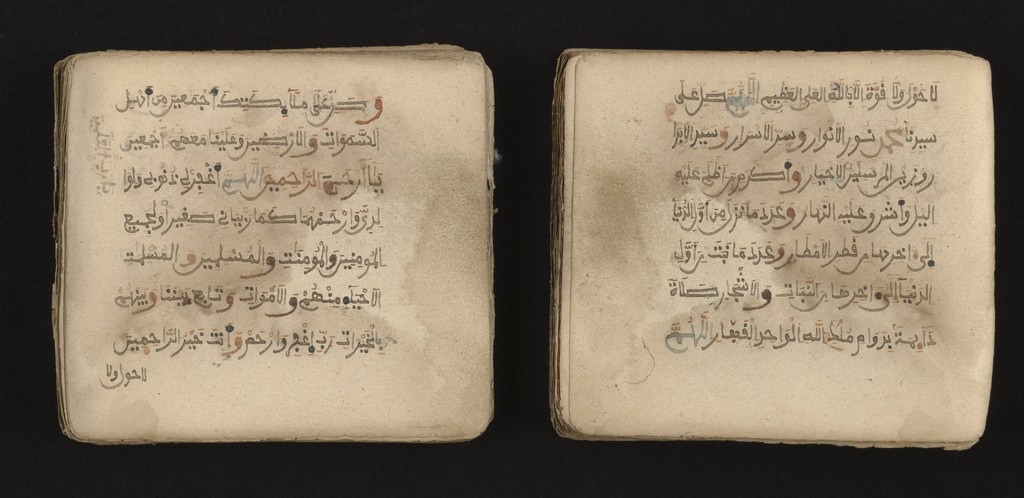 وصل على ملايكتك أجمعين من أهل
السموات والارضين وعلينا معهم اجمعين
يا أرحم الراحمين اللهم اغفر لي ذنوبي ولوا
لدي وارحمهما كما ربياني صغيرا ولجميع
المومنين والمومنت والمسلمين والمسلمت
الاحياء منهم والاموات وتابع بيننا وبينهم
بالخيرات رب اغفر وارحم وانت خير الراحمين
لا حول ولا
لا حول ولا قوة الا بالله العلي العظيم اللهم صل على
سيدنا محمد نور الانوار وسر الاسرار وسيد الابرا
ر وزين المرسلين الاخيار وأكرم من اظلم عليه
اليل وأشرق عليه النهار وعدد ما نزل من أول الدنيا
إلى اخرها من قطر الامطار وعدد ما نبت من أول
الدنيا إلى اخرها من النبات والاشجار صلاة
دايمة بدوام ملك الله الواحد القهار اللهم